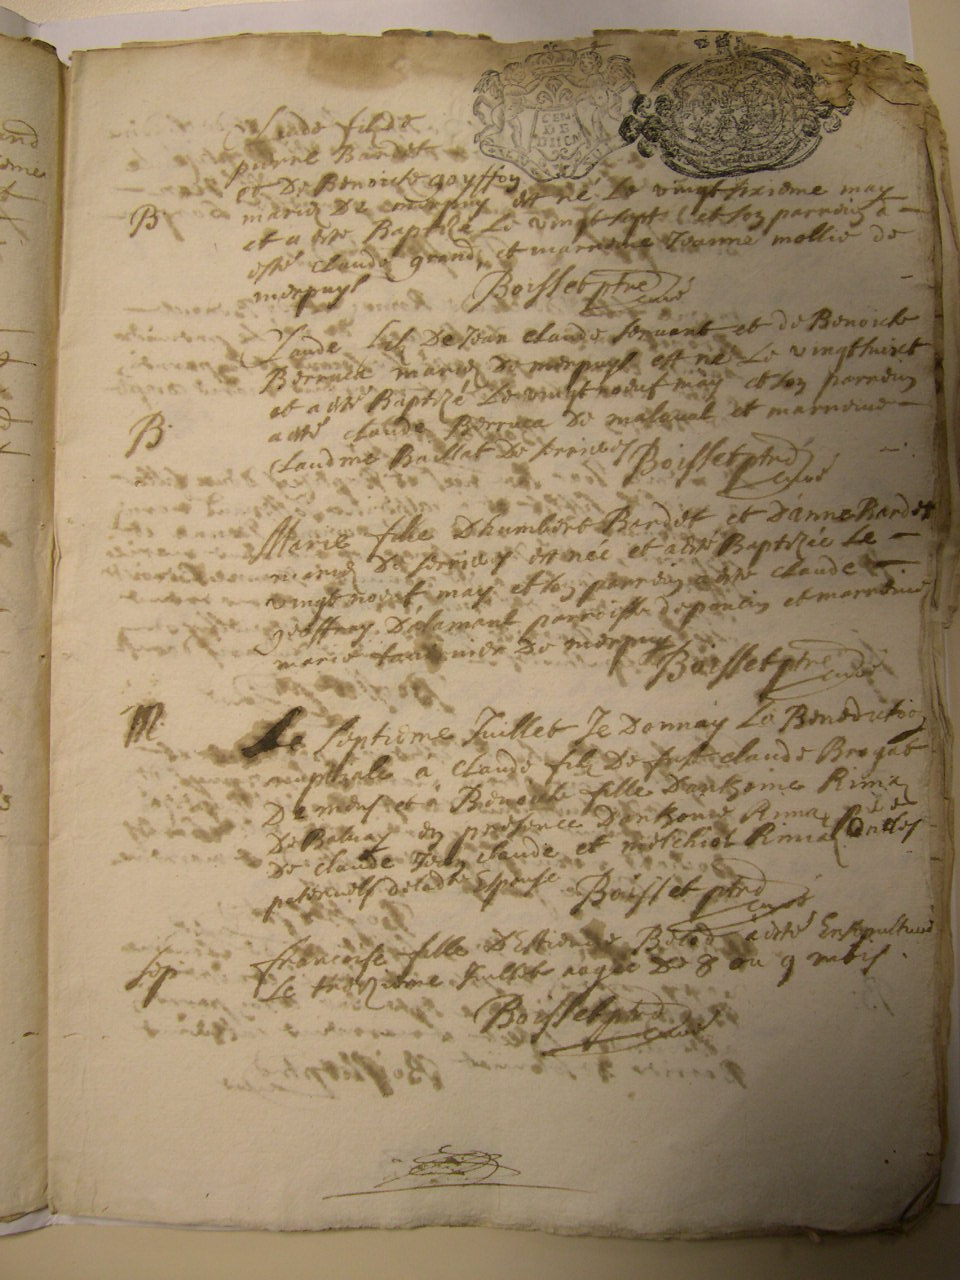 Claude fils de
pierre Bardet
et De Benoiste goyffon
B mariez De merpuys est né Le vingt sixieme may
et a esté Baptizé Le vingt sept et son parrein a
esté claude grand, et marreine Jeanne mollie de
merpuys Boisset ptre curé
Claude fils De Jean claude servant et de Benoiste
Berruca mariez De merpuys est né Le vingt huict
et a esté Baptizé Le vingt noeuf may et son parrein
B a esté claude Berruca De malaval et marreine
claudine Baillat De serrieres Boisset ptre curé
Marie fille D'humbert Bardet et D'anne Bardet
mariez De serrieres est nee et a esté Baptizée Le
vingt noeuf may et son parrein a esté claude
geoffray D'alamant parroisse de poncin et marreine
marie De merpuys Boisset ptre curé
M Le septieme Juillet Je Donnay La Benediction
nuptiale à claude filz De fust claude Brogat
De mens et à Benoiste fille D'anthoine Rimaz
De Balvay en presence D'anthoine Rimaz
De claude Jean claude et melchiol Rimaz oncles
paternels de ladte Espouse Boisset ptre curé
francoise fille D'Estienne a esté Ensepulturée
sep Le treizieme Juillet aagée De 8 ou 9 mois.
Boisset ptre curé